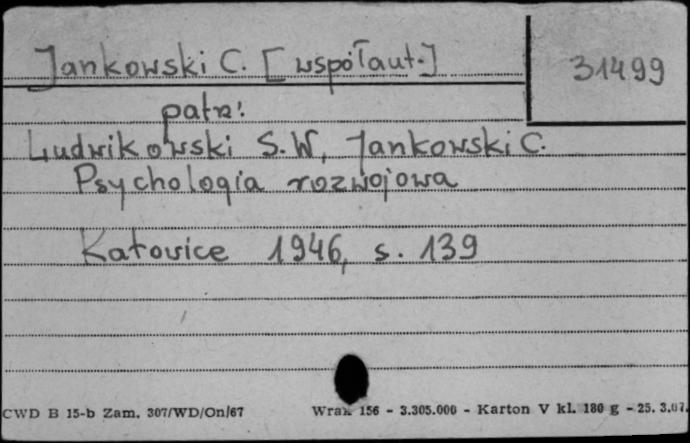 Jankowski C. [współaut.]
31499
patrz:
Ludwikowski S.W., Jankowski C.
Psychologia rozwojowa
Katowice 1946, s. 139
CWD B 15-b Zam. 307/WD/On/67 156 - 3.305.000 - Karton V kl. 180 g - 25. 3.67.